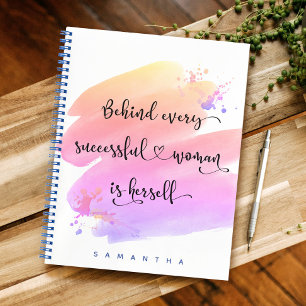 Behind every
successful woman
is herself
SAMANTHA